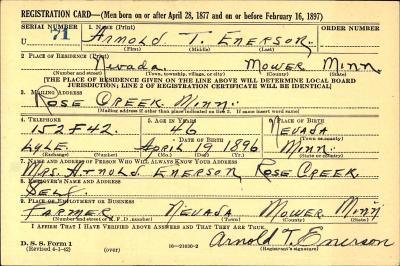 REGISTRATION CARD—(Men born on or after April 28, 1877 and on or before February 16, 1897)
SERIAL NUMBER
1. NAME (Print)
ORDER NUMBER
U 71
ARNOLD T. ENERSON.
(First) (Middle) (Last)
2. PLACE OF RESIDENCE (Print)
Nevada Mower Minn
(Number and street) (Town, township, village, or city) (County) (State)
[THE PLACE OF RESIDENCE GIVEN ON THE LINE ABOVE WILL DETERMINE LOCAL BOARD
JURISDICTION; LINE 2 OF REGISTRATION CERTIFICATE WILL BE IDENTICAL]
3. MAILING ADDRESS
ROSE CREEK MINN.
(Mailing address if other than place indicated on line 2. If same insert word same)
4. TELEPHONE
5. AGE IN YEARS
PLACE OF BIRTH
152F42.
46
NEVADA
DATE OF BIRTH
(Town or county)
LYLE.
APRIL 19 1896
MINN.
(Exchange) (Number)
(Mo.) (Day) (Yr.)
(State or country)
7. NAME AND ADDRESS OF PERSON WHO WILL ALWAYS KNOW YOUR ADDRESS
MRS. ARNOLD ENERSON, ROSE CREEK
8. EMPLOYER'S NAME AND ADDRESS
SELF
9. PLACE OF EMPLOYMENT OR BUSINESS
FARMER NEVADA MOWER MINN
(Number and street or R. F. D. number) (Town) (County) (State)
I AFFIRM THAT I HAVE VERIFIED ABOVE ANSWERS AND THAT THEY ARE TRUE.
D. S. S. Form 1
(Revised 4-1-42) (over) 16—21630-2
Arnold T. Enerson
(Registrant's signature)